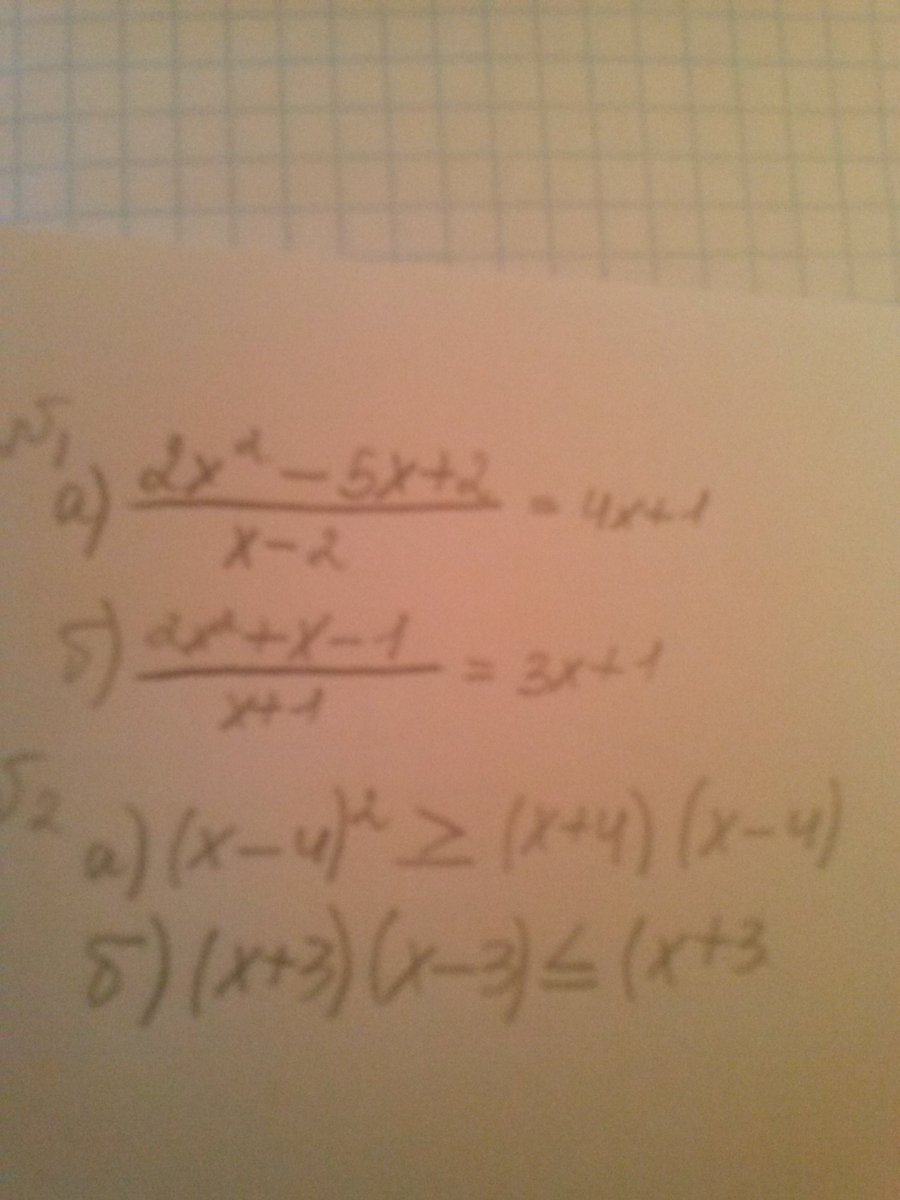 №1
а) (2x² - 5x + 2)/(x - 2) = 4x+1
б) (2x² + x - 1)/(x+1) = 3x+1
№2
а) (x-4)² ≥ (x+4) (x-4)
б) (x+3)(x-3) ≤ (x+3